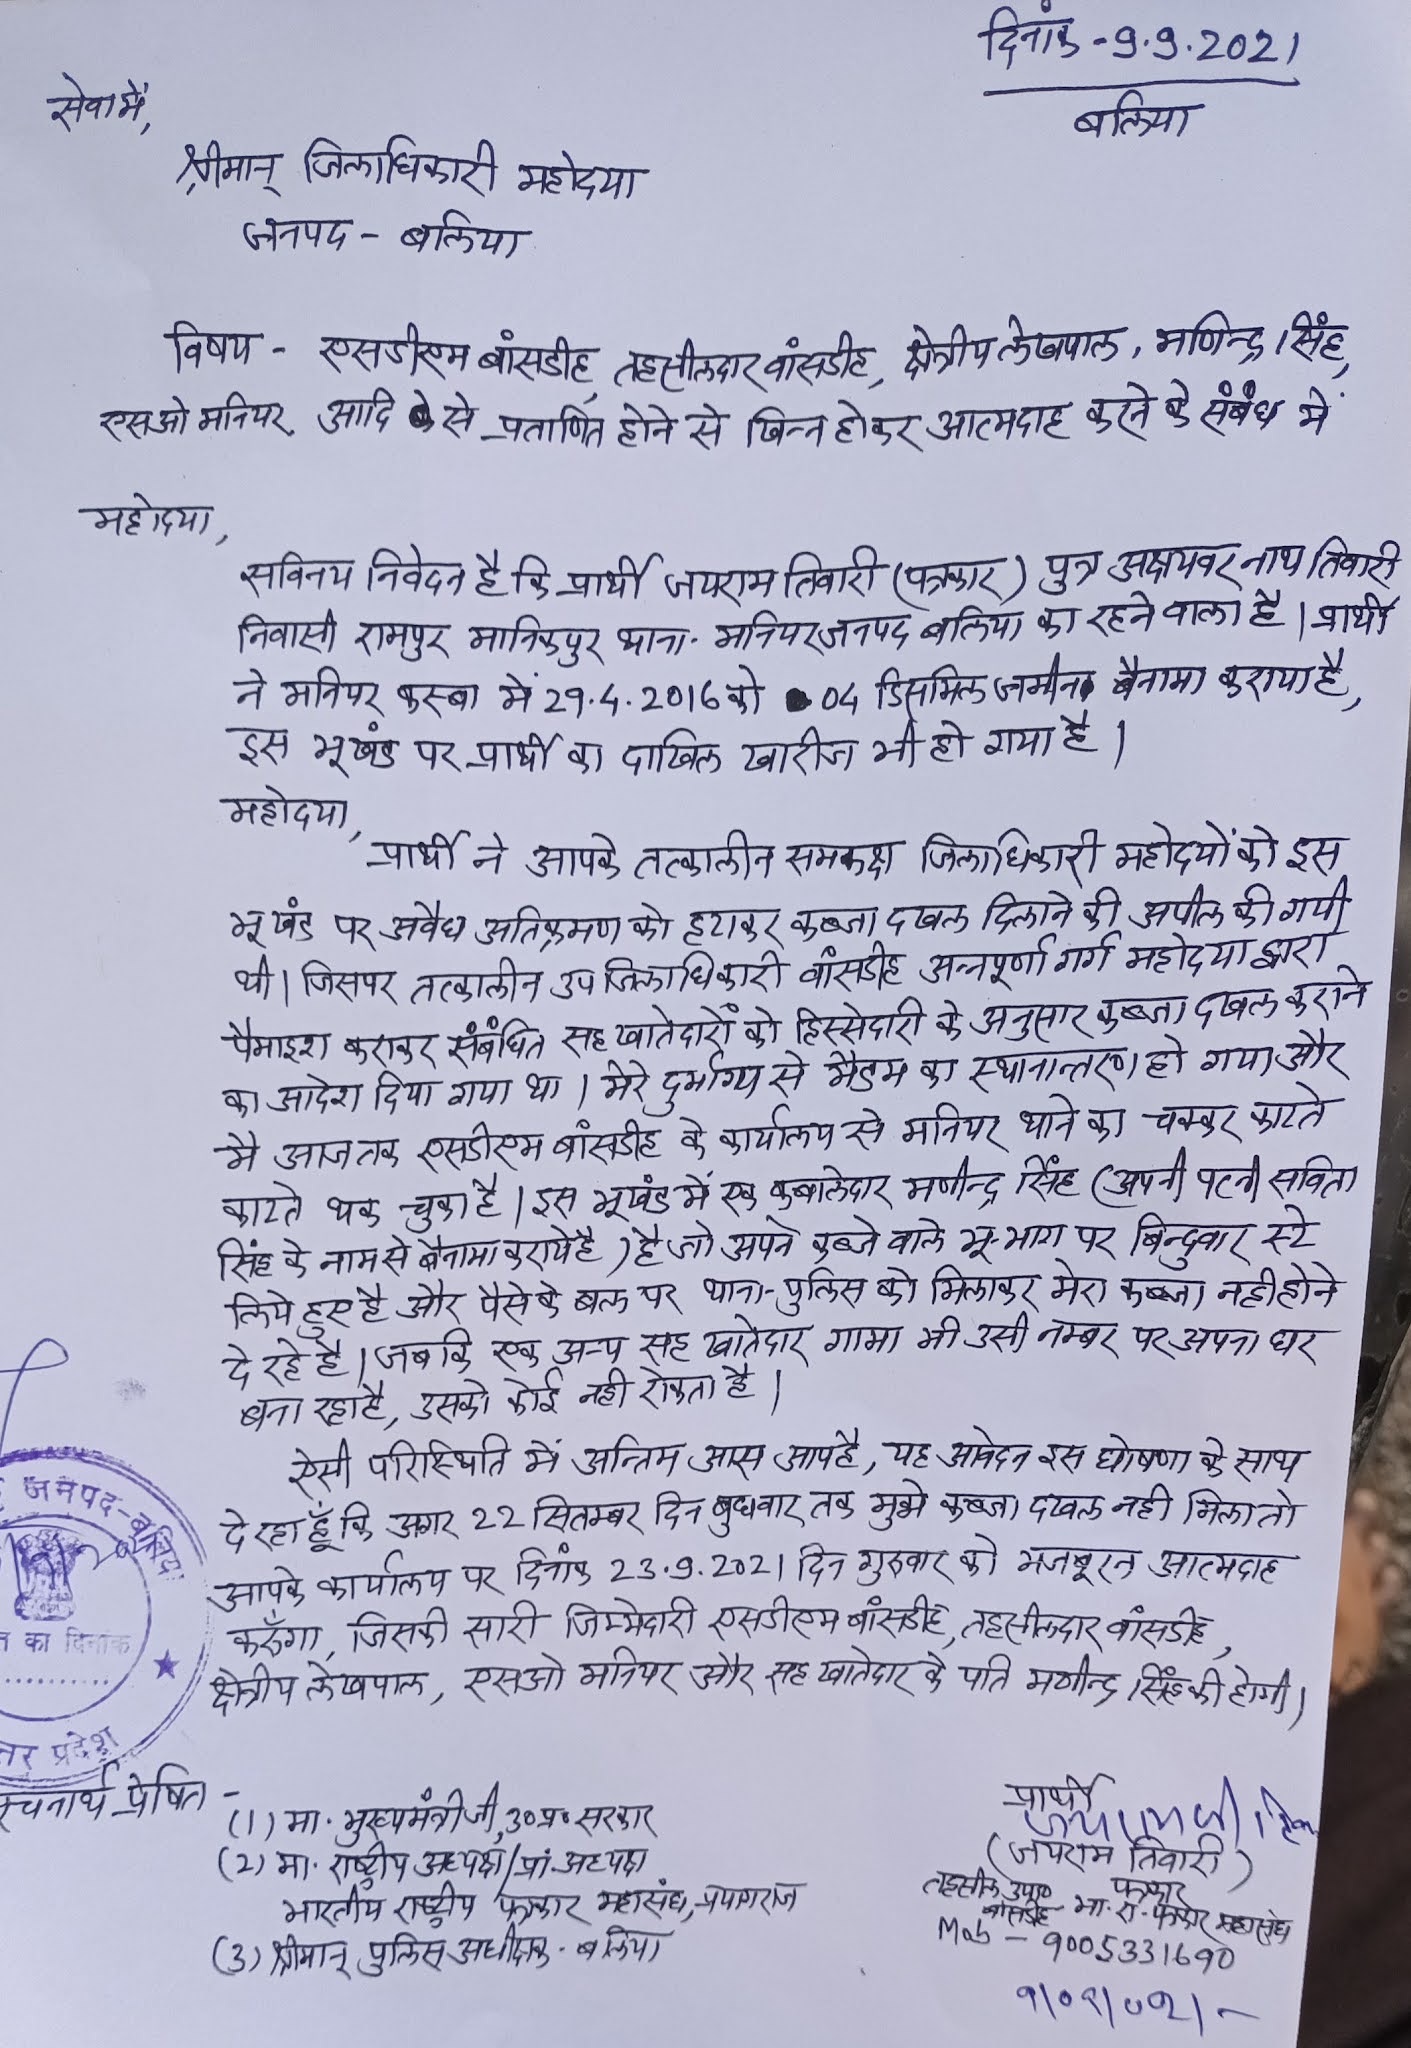 दिनांक - 9.9.2021
बलिया
सेवा में,
श्रीमान् जिलाधिकारी महोदया
जनपद - बलिया
विषय - एसडीएम बांसडीह, तहसीलदार बांसडीह, क्षेत्रीय लेखपाल, मणिन्द्र सिंह,
एसओ मनियर, आदि से प्रताणित होने से खिन्न होकर आत्मदाह करने के संबंध में
महोदया,
सविनय निवेदन है कि प्रार्थी जयराम तिवारी (पत्रकार) पुत्र अक्षयवर नाथ तिवारी
निवासी रामपुर मानिकपुर थाना- मनियर जनपद बलिया का रहने वाला है। प्रार्थी
ने मनियर कस्बा में 29.4.2016 को 04 डिसमिल जमीन बैनामा कराया है,
इस भूखंड पर प्रार्थी का दाखिल खारीज भी हो गया है।
महोदया,
प्रार्थी ने आपके तत्कालीन समकक्ष जिलाधिकारी महोदयों को इस
भूखंड पर अवैध अतिक्रमण को हटाकर कब्जा दखल दिलाने की अपील की गयी
थी। जिसपर तत्कालीन उप जिलाधिकारी बांसडीह अन्नपूर्णा गर्ग महोदया द्वारा
पैमाइश कराकर संबंधित सह खातेदारों को हिस्सेदारी के अनुसार कब्जा दखल कराने
का आदेश दिया गया था। मेरे दुर्भाग्य से मैडम का स्थानान्तरण हो गया और
मै आज तक एसडीएम बांसडीह के कार्यालय से मनियर थाने का चक्कर काटते
काटते थक चुका है। इस भूखंड में एक कबालेदार मणीन्द्र सिंह (अपनी पत्नी सविता
सिंह के नाम से बैनामा कराये है) है जो अपने कब्जे वाले भू-भाग पर बिन्दुवार स्टे
लिये हुए है और पैसे के बल पर थाना-पुलिस को मिलाकर मेरा कब्जा नही होने
दे रहे है। जबकि एक अन्य सह खातेदार गामा भी उसी नम्बर पर अपना घर
बना रहा है, उसको कोई नही रोकता है।
ऐसी परिस्थिति में अन्तिम आस आप है, यह आवेदन इस घोषणा के साथ
दे रहा हूँ कि अगर 22 सितम्बर दिन बुधवार तक मुझे कब्जा दखल नही मिला तो
आपके कार्यालय पर दिनांक 23.9.2021 दिन गुरुवार को मजबूरन आत्मदाह
करूँगा, जिसकी सारी जिम्मेदारी एसडीएम बांसडीह, तहसीलदार बांसडीह,
क्षेत्रीय लेखपाल, एसओ मनियर और सह खातेदार के पति मणीन्द्र सिंह की होगी।
जनपद-बलिया
का दिनांक
प्रदेश
सूचनार्थ प्रेषित -
(1) मा. मुख्यमंत्री जी, उ०प्र० सरकार
(2) मा. राष्ट्रीय अध्यक्ष/प्रां. अध्यक्ष
भारतीय राष्ट्रीय पत्रकार महासंघ, प्रयागराज
(3) श्रीमान् पुलिस अधीक्षक - बलिया
प्रार्थी
(जयराम तिवारी)
पत्रकार
तहसील
बांसडीह भा. रा. पत्रकार महासंघ
Mob - 9005331690